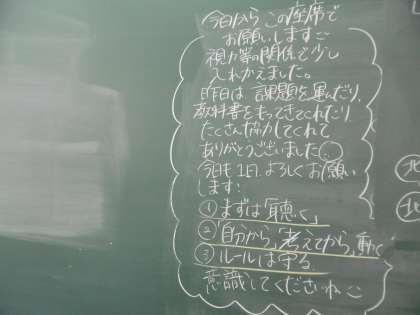 今日から この座席で
お願いします
視力等の関係で少し
入れかえました。
昨日は 課題を運んだり、
教科書をもってきてくれたり
たくさん協力してくれて
ありがとうございました
今日も1日よろしくお願い
します!
① まずは「聴く」
②「自分から」考えてから、動く
③ ルールは守る
意識してくださいね